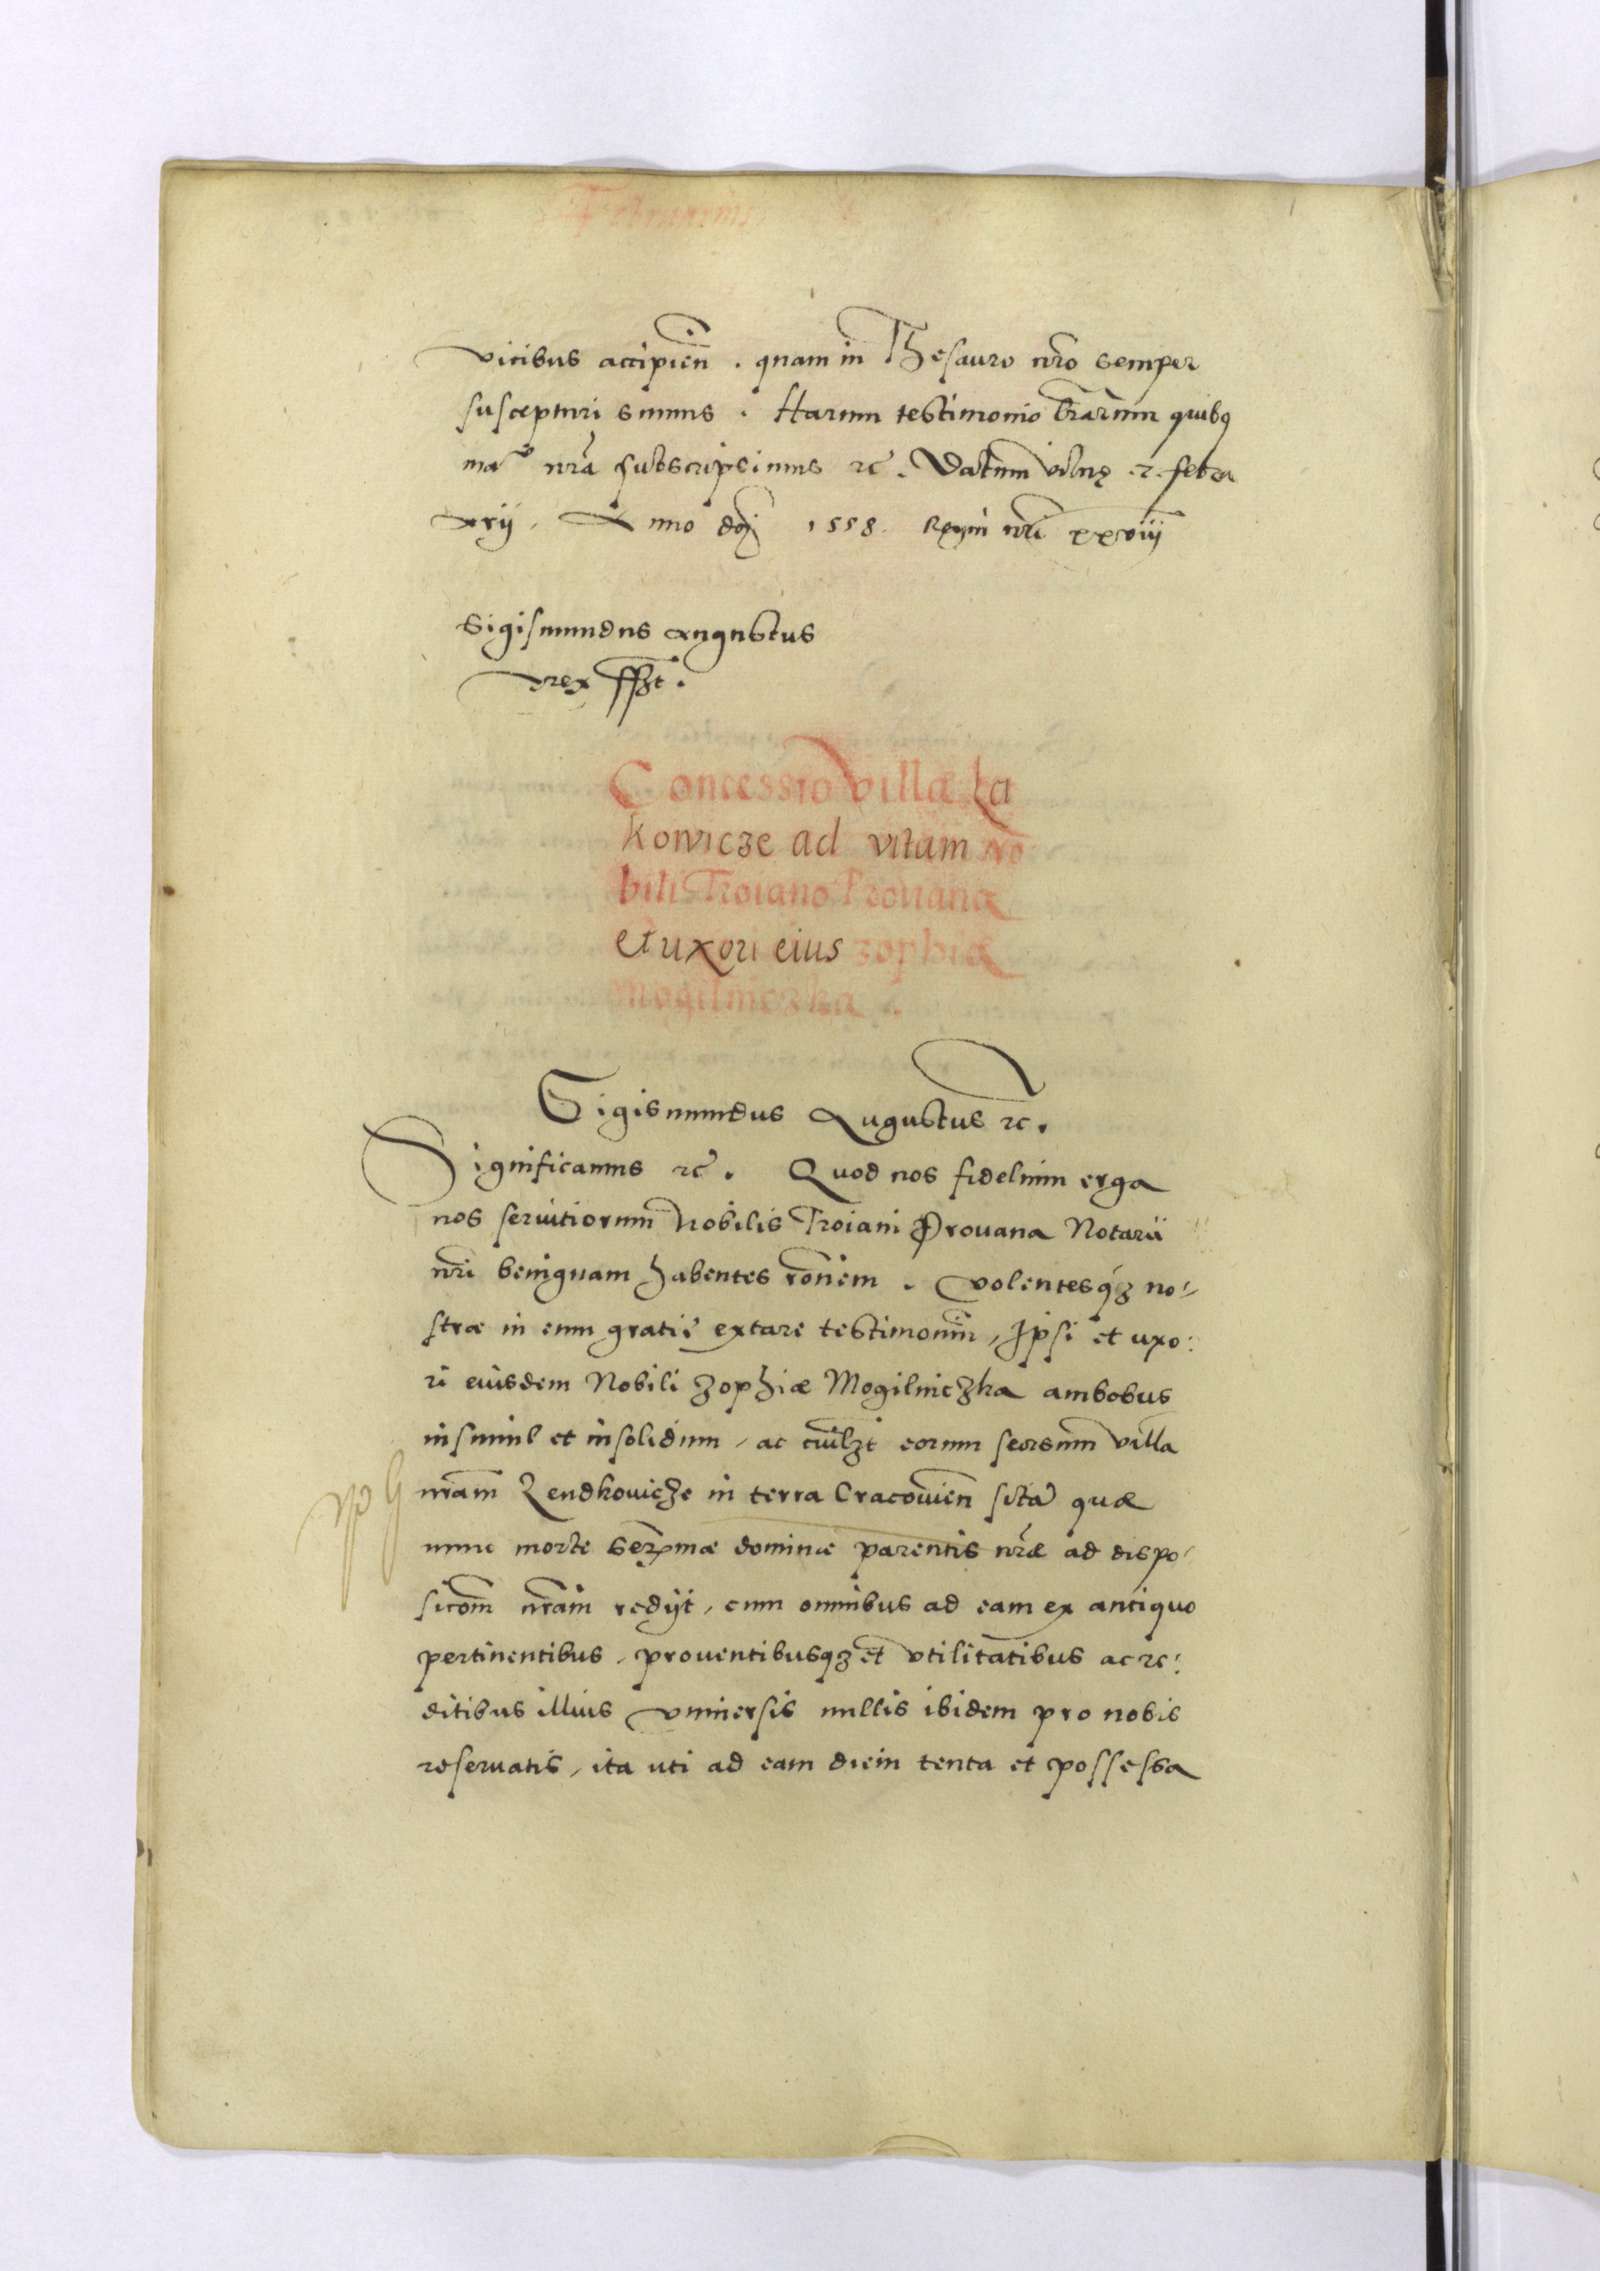 Februarius
vicibus accipien̄. quam in Thesauro nr̄o semper
suscepturi sumus. Harum testimonio l̄rarum quibꝫ
manu nr̄a subscripsimus ꝛc̄. Datum Vilnę ꝛ. febr
Anno dnj 1558. Regni nr̄i xxviij
Sigismundus Augustus
rex sszt.
Concessio villæ Za
kowicze ad vitam No
bili Troiano Prouana
et uxori eius zophiæ
Mogilniczka.
Sigismundus Augustus ꝛc.
Significamus ꝛc̄. Quod nos fidelium erga
nos seruitiorum Nobilis Troiani Prouana Notarii
nr̄i benignam habentes ron̄em. Volentesqꝫ no-
stræ in eum gratię extare testimoniū, Ipsi et uxo:
ri eiusdem Nobili Zophiæ Mogilniczka ambobus
insimul et insolidum, ac cuilꝫt eorum seorsum villā
nr̄am Zendkovicze in terra Cracovien̄ sitā quæ
nunc morte Sermæ dominæ parentis nr̄æ ad dispo-
sicom̄ nr̄am redijt, cum omnibus ad eam ex antiquo
pertinentibus, prouentibusqꝫ et vtilitatibus ac re:
ditibus illius vniuersis nullis ibidem pro nobis
reseruatis, ita uti ad eam diem tenta et possessa